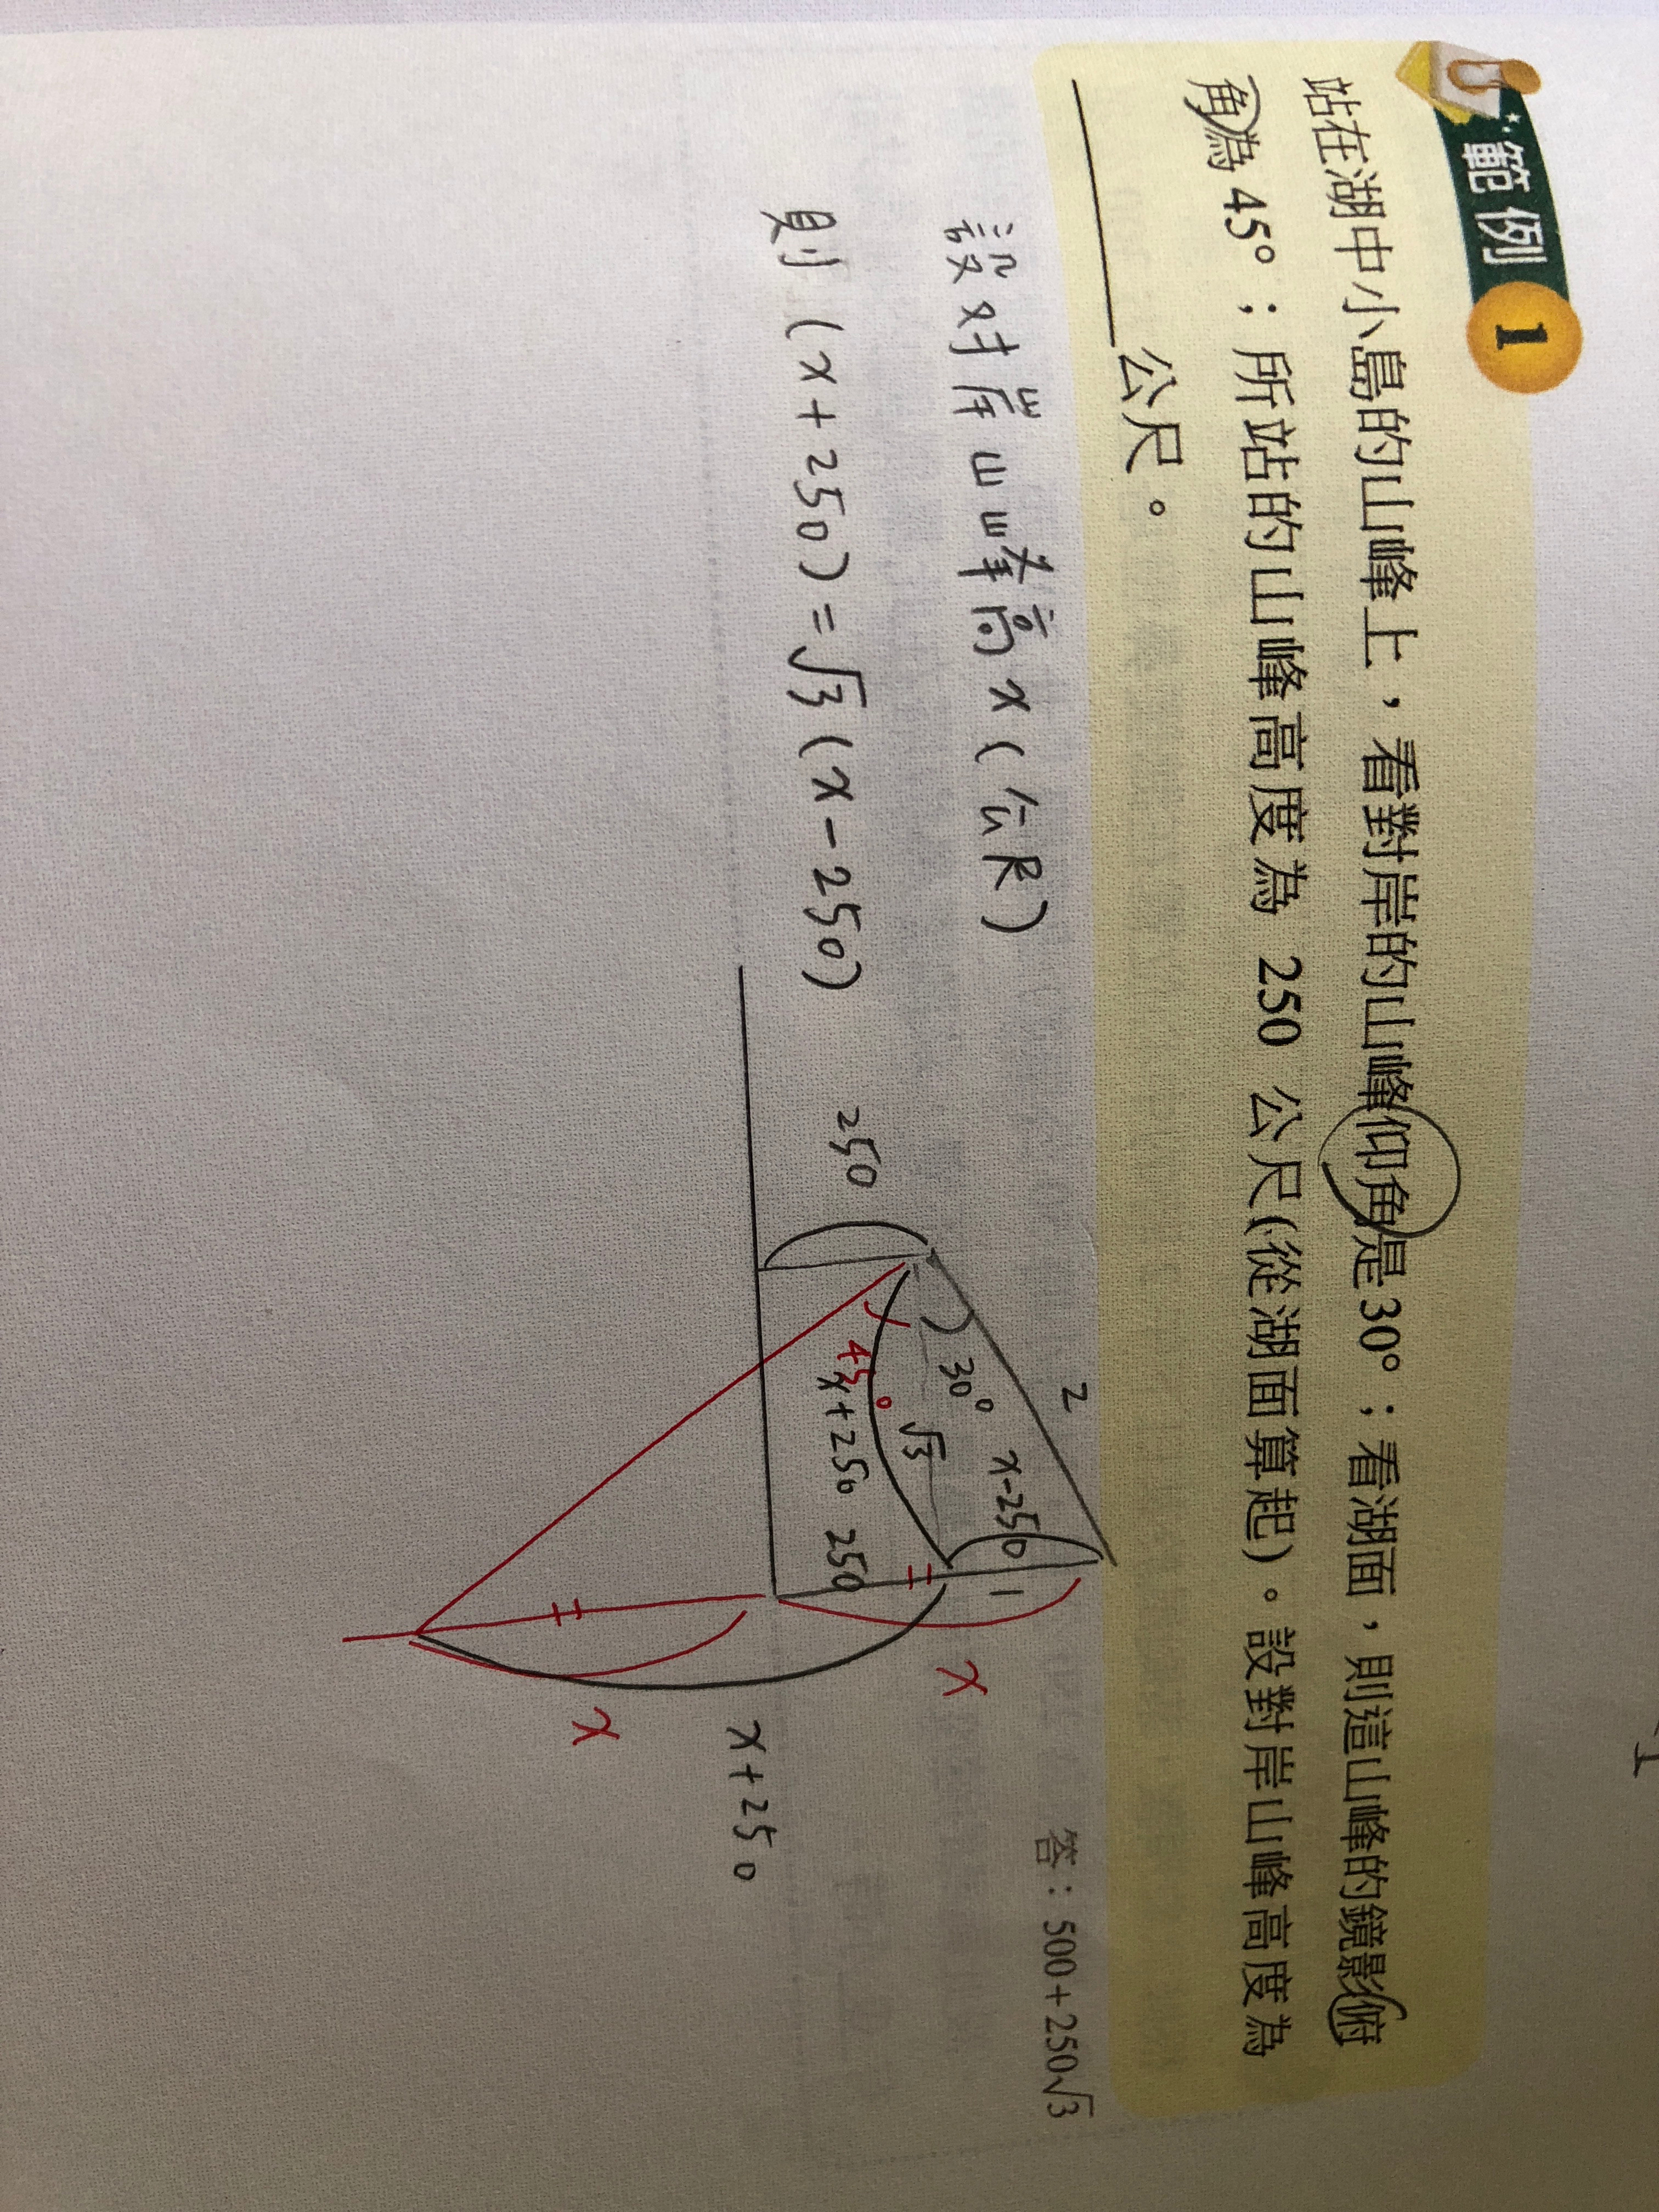 範例 1
站在湖中小島的山峰上，看對岸的山峰仰角是30°；看湖面，則這山峰的鏡影俯
角為 45°；所站的山峰高度為 250 公尺(從湖面算起)。設對岸山峰高度為
公尺。
答：500+250√3
設對岸山峰高x(公尺)
則 (x+250)=√3(x-250)
2
30°
x-250
√3
1
250
45°
x+250
250
x
x
x+250